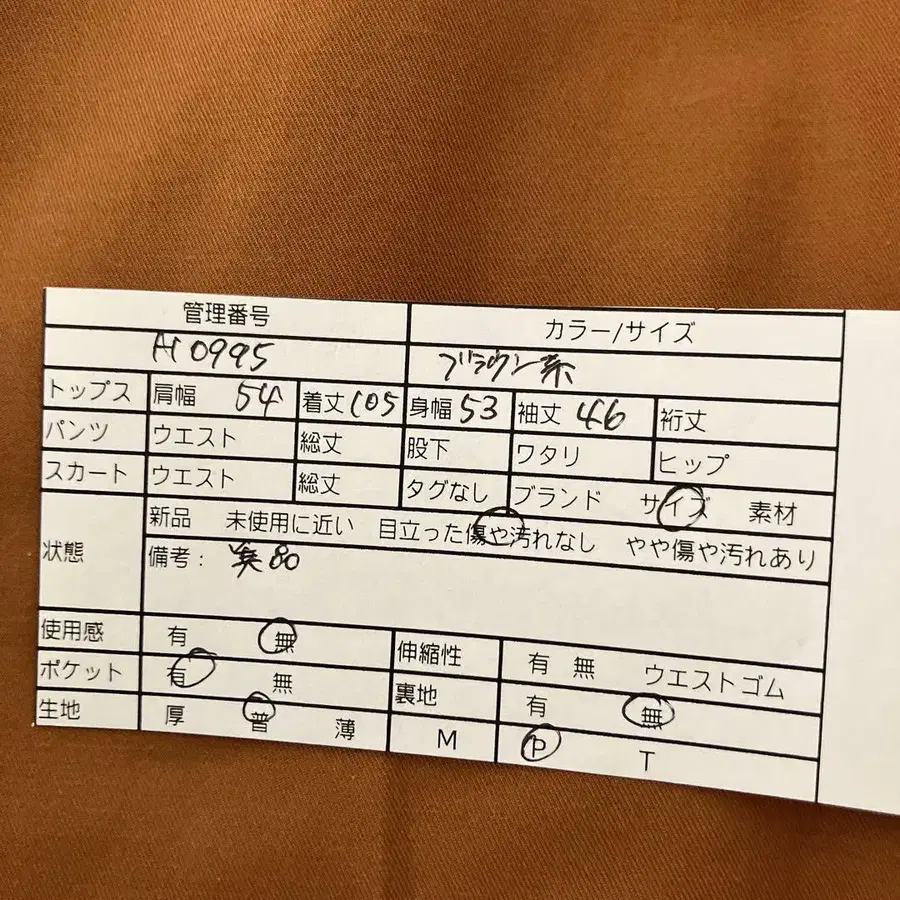 管理番号 カラー/サイズ
H0995 ブラウン系
トップス 肩幅 54 着丈 105 身幅 53 袖丈 46 裄丈
パンツ ウエスト 総丈 股下 ワタリ ヒップ
スカート ウエスト 総丈 タグなし ブランド サイズ 素材
状態 新品 未使用に近い 目立った傷や汚れなし やや傷や汚れあり
備考: 80
使用感 有 無 伸縮性 有 無 ウエストゴム
ポケット 有 無 裏地 有 無
生地 厚 普 薄 M P T